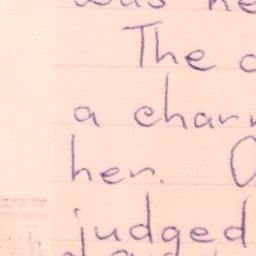 was he
The
a char
her.
judged